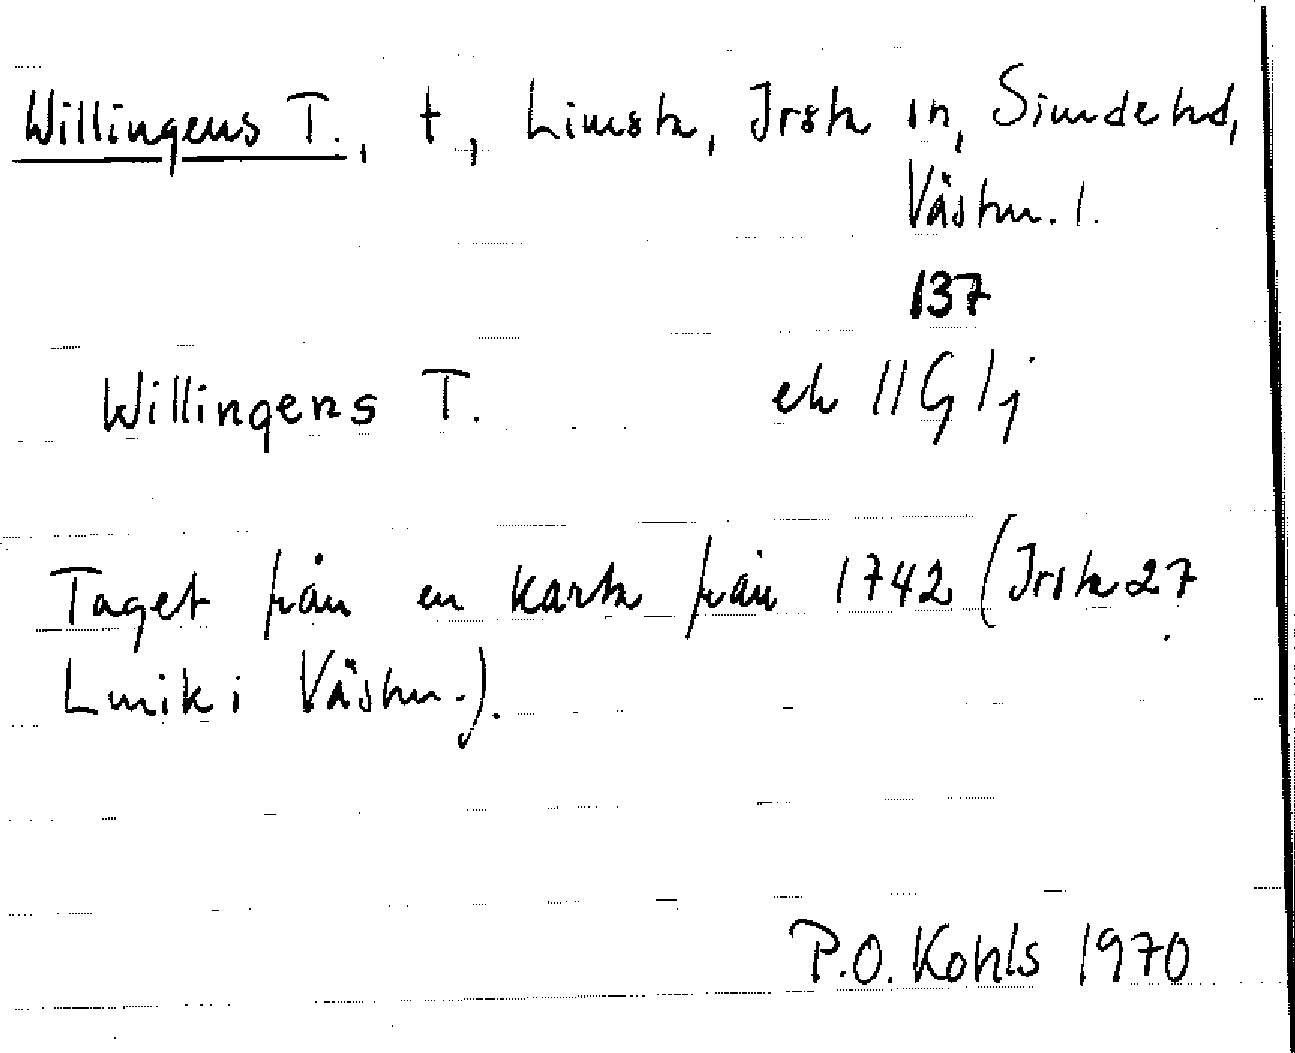 Willingens T., t., Limsta, Irsta sn, Siende hd,
Västm. l.
137
Willingens T. ek 11G 1j
Taget från en karta från 1742 (Irsta 27
Lmik i Västm.).
P.O. Kohls 1970